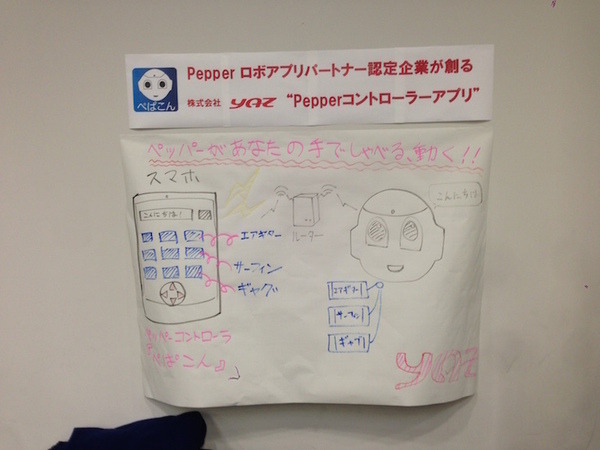 Pepper ロボアプリパートナー認定企業が創る
ぺぱこん
株式会社 YAZ “Pepperコントローラーアプリ”
ペッパーがあなたの手でしゃべる、動く!!
スマホ
こんにちは!
エアギター
サーフィン
ギャグ
ルーター
こんにちは
エアギター
サーフィン
ギャグ
ペッパーコントローラ
『ぺぱこん』
YAZ